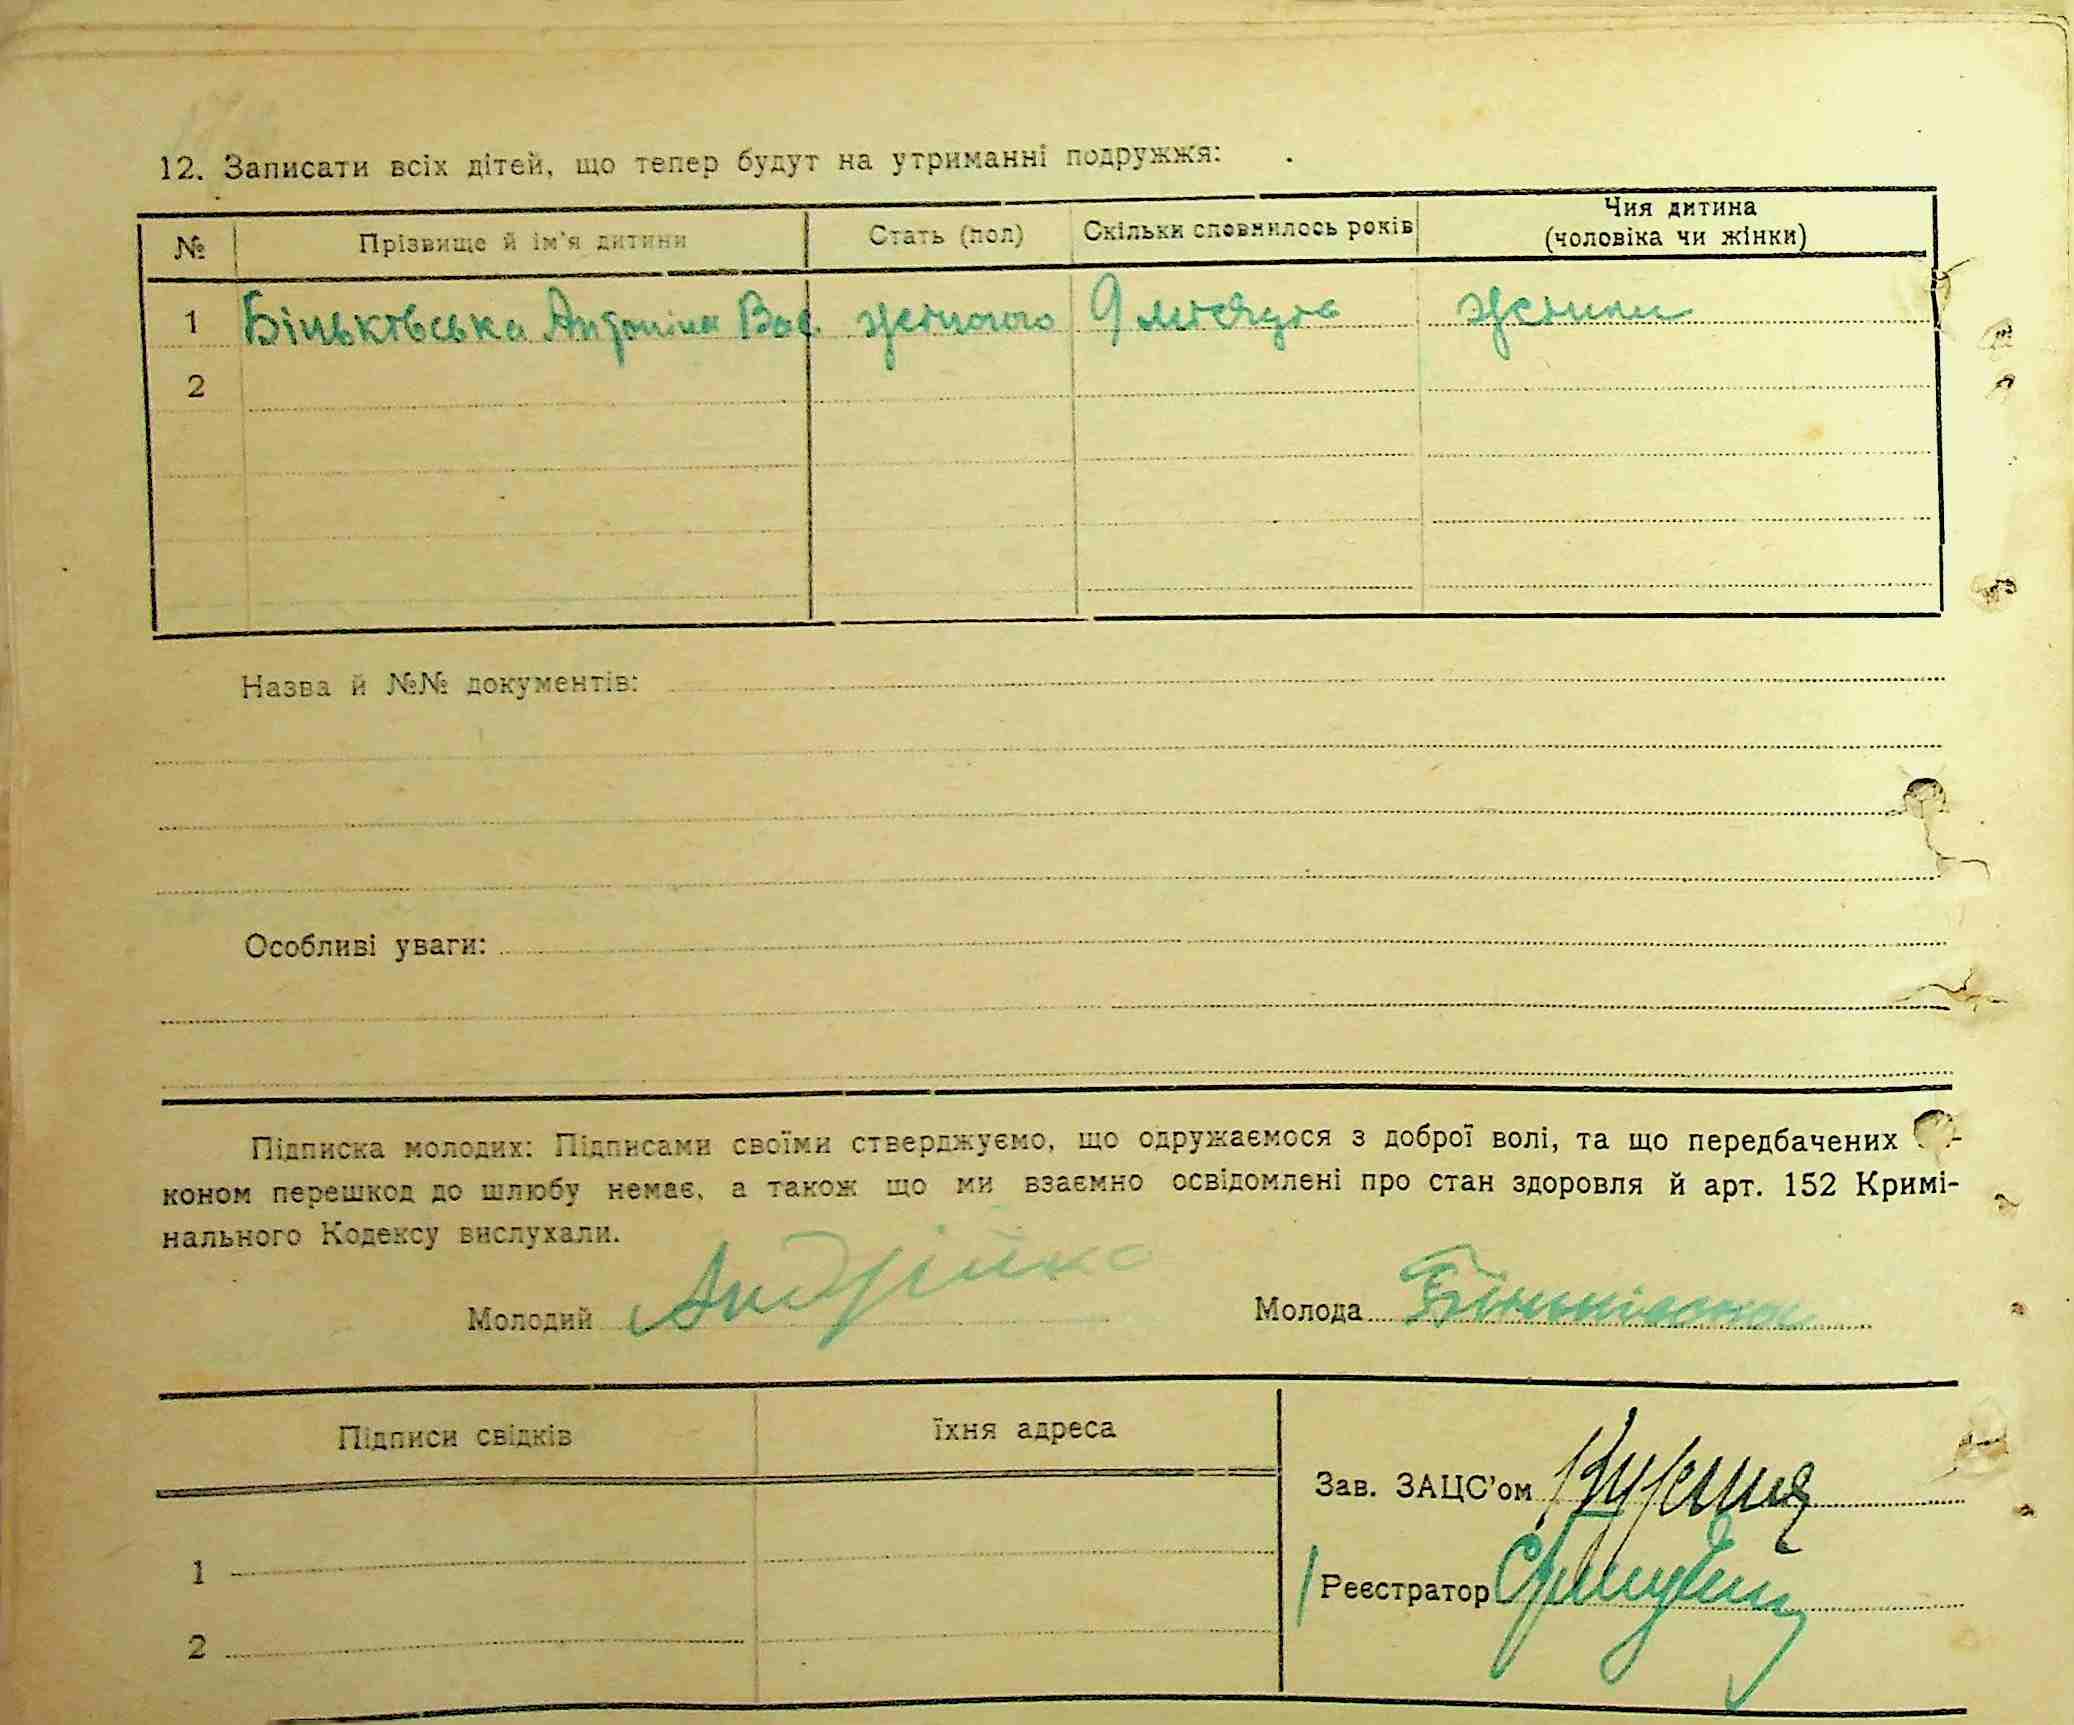 12. Записати всіх дітей, що тепер будут на утриманні подружжя:
№ Прізвище й ім'я дитини Стать (пол) Скільки сповнилось років Чия дитина
(чоловіка чи жінки)
1 Біньковська Антоніна Вас. жіночого 9 місяців жінки
2
Назва й №№ документів:
Особливі уваги:
Підписка молодих: Підписами своїми стверджуємо, що одружаємося з доброї волі, та що передбачених
коном перешкод до шлюбу немає, а також що ми взаємно освідомлені про стан здоровля й арт. 152 Кримі-
нального Кодексу вислухали.
Молодий Андрійко Молода
Підписи свідків Їхня адреса
Зав. ЗАЦС'ом
1
Реєстратор
2